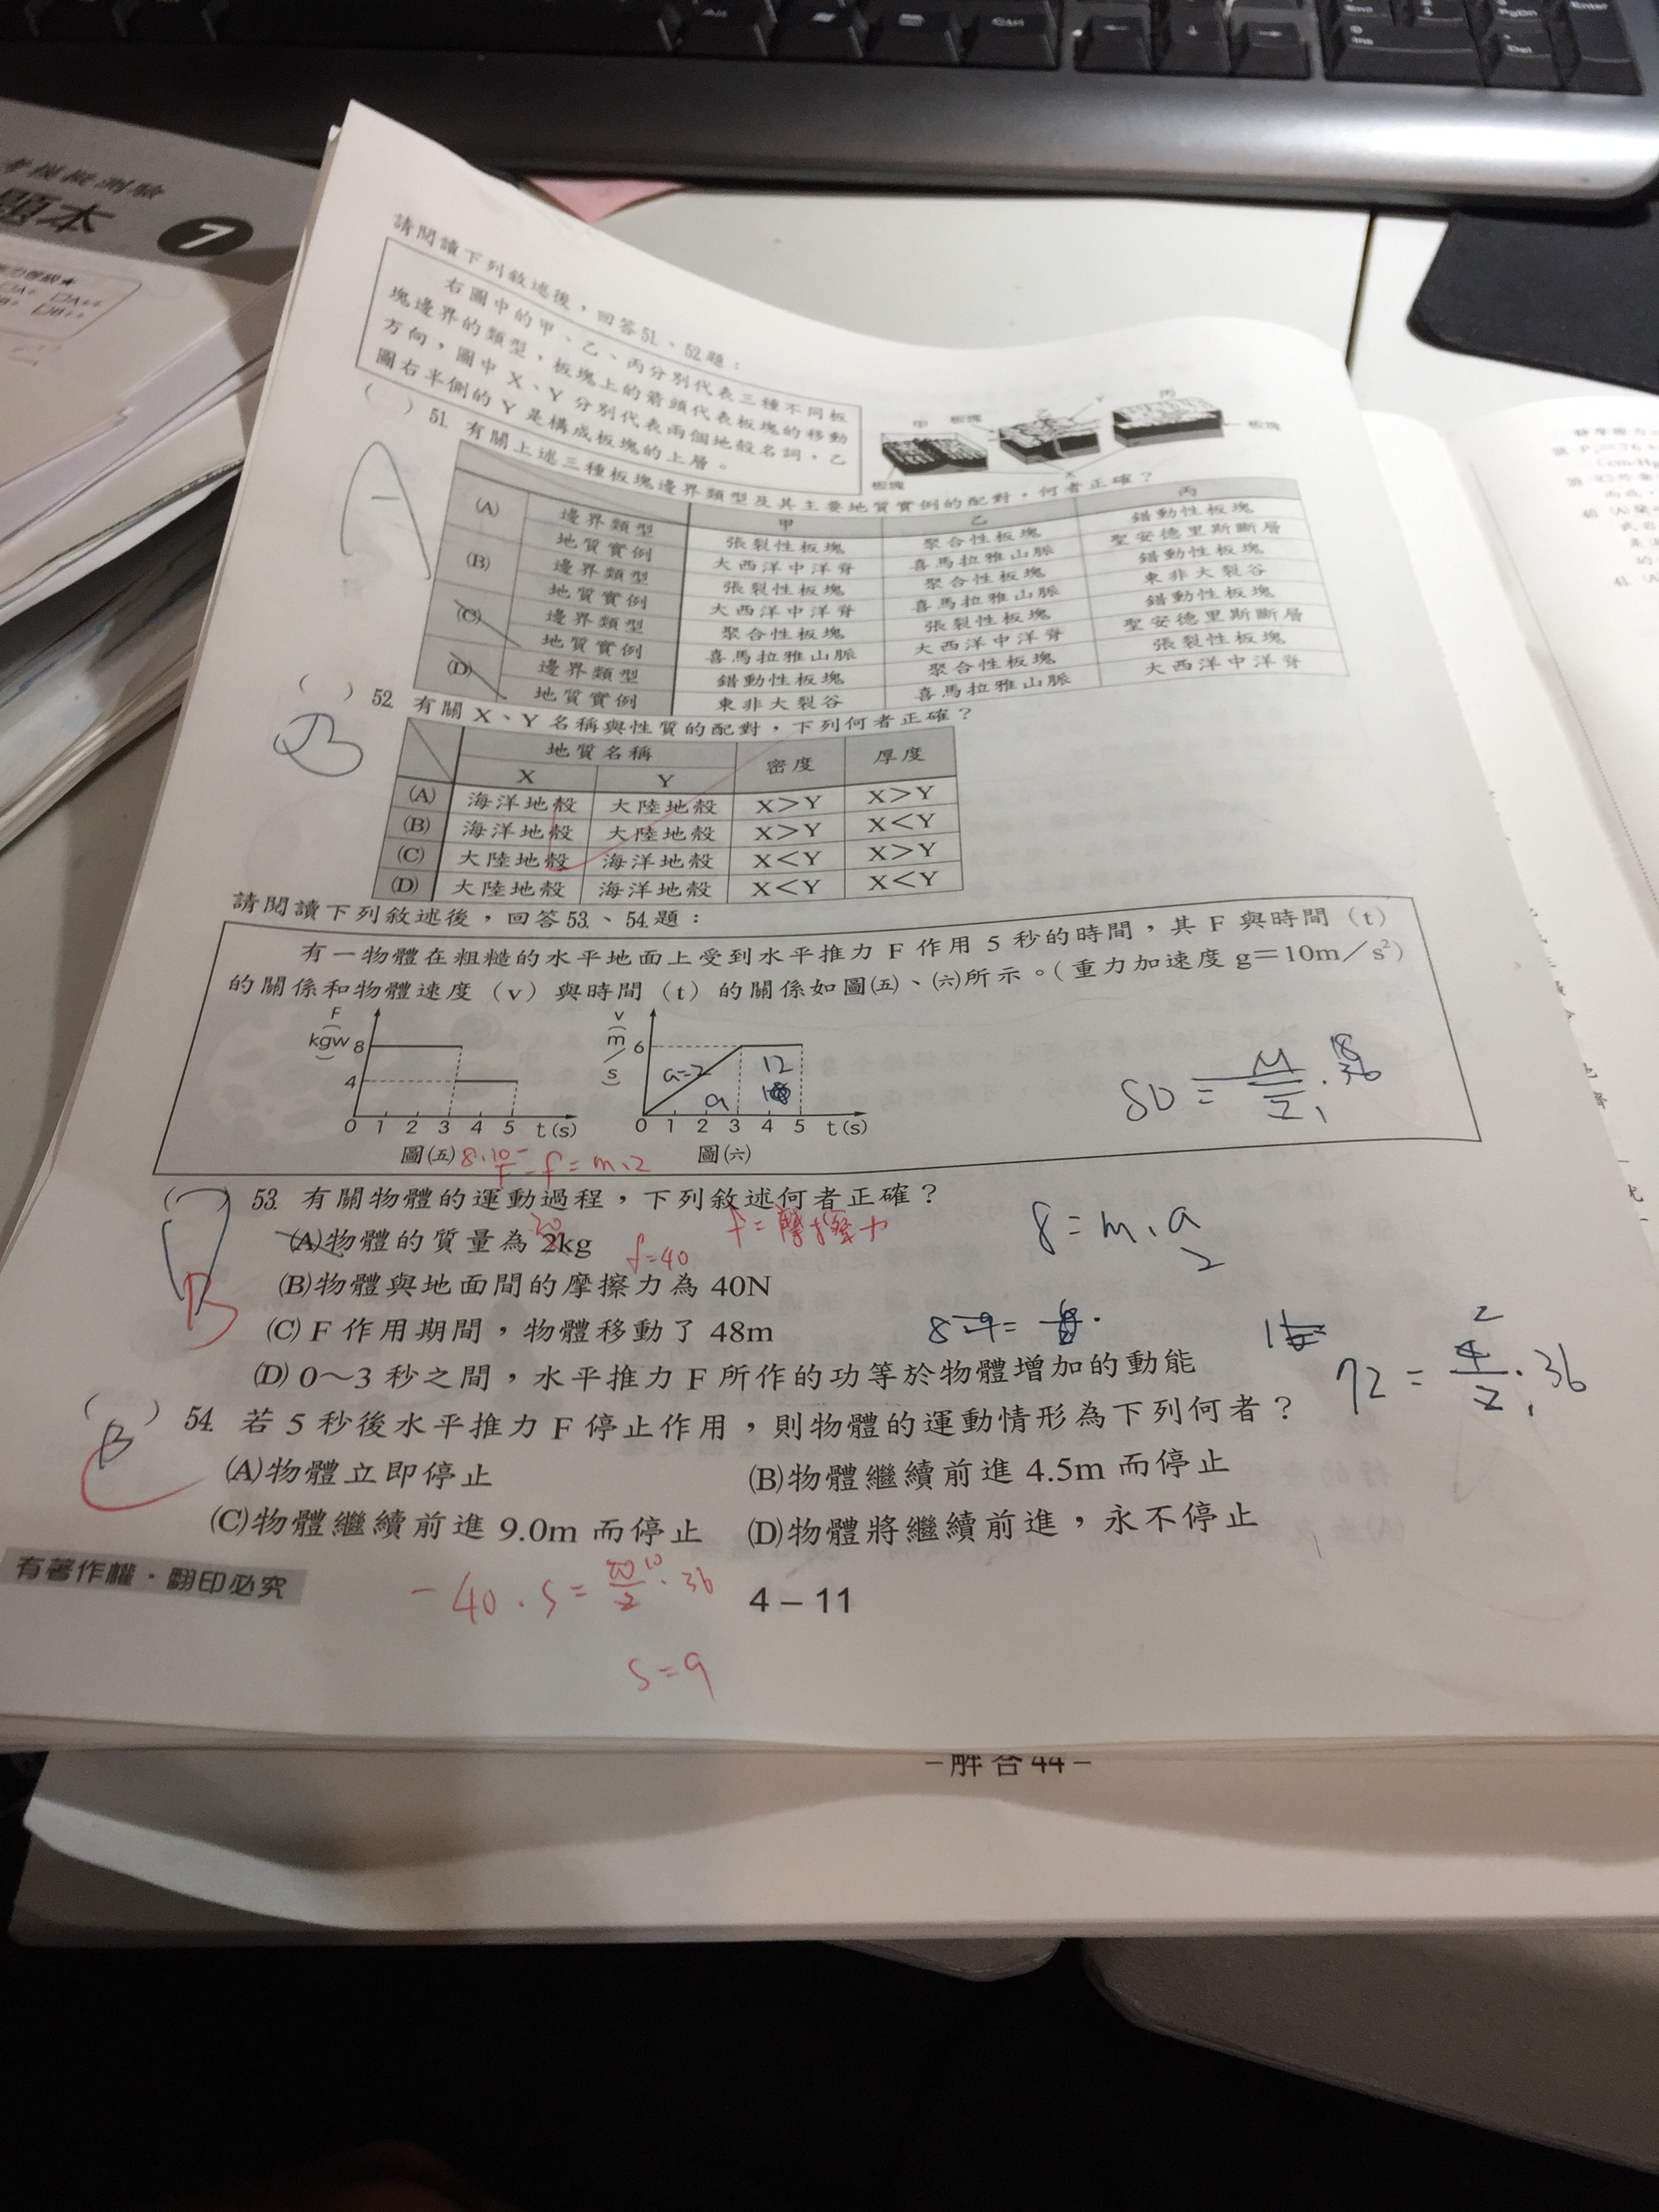 考模擬測驗
題本 7
請閱讀下列敘述後，回答51、52題：
右圖中的甲、乙、丙分別代表三種不同板
塊邊界的類型，板塊上的箭頭代表板塊的移動
方向，圖中 X、Y 分別代表兩個地殼名詞，乙
圖右半側的 Y 是構成板塊的上層。
甲 板塊 乙 Y 丙 板塊
板塊 X
( ) 51. 有關上述三種板塊邊界類型及其主要地質實例的配對，何者正確？
A
甲 乙 丙
(A) 邊界類型 張裂性板塊 聚合性板塊 錯動性板塊
地質實例 大西洋中洋脊 喜馬拉雅山脈 聖安德里斯斷層
(B) 邊界類型 張裂性板塊 聚合性板塊 錯動性板塊
地質實例 大西洋中洋脊 喜馬拉雅山脈 東非大裂谷
(C) 邊界類型 聚合性板塊 張裂性板塊 錯動性板塊
地質實例 喜馬拉雅山脈 大西洋中洋脊 聖安德里斯斷層
(D) 邊界類型 錯動性板塊 聚合性板塊 張裂性板塊
地質實例 東非大裂谷 喜馬拉雅山脈 大西洋中洋脊
( ) 52. 有關 X、Y 名稱與性質的配對，下列何者正確？
B
地質名稱 密度 厚度
X Y
(A) 海洋地殼 大陸地殼 X＞Y X＞Y
(B) 海洋地殼 大陸地殼 X＞Y X＜Y
(C) 大陸地殼 海洋地殼 X＜Y X＞Y
(D) 大陸地殼 海洋地殼 X＜Y X＜Y
請閱讀下列敘述後，回答53、54題：
有一物體在粗糙的水平地面上受到水平推力 F 作用 5 秒的時間，其 F 與時間（t）
的關係和物體速度（v）與時間（t）的關係如圖(五)、(六)所示。(重力加速度 g＝10m／s²)
F (kgw) 8 4 0 1 2 3 4 5 t(s)
v (m/s) 6 0 1 2 3 4 5 t(s)
a=2 9 12
圖(五) 圖(六)
F - f = m．2
( ) 53. 有關物體的運動過程，下列敘述何者正確？
B
(A)物體的質量為 2kg
20
f=40
f=摩擦力
8 = m．a
2
(B)物體與地面間的摩擦力為 40N
(C) F 作用期間，物體移動了 48m
(D) 0～3 秒之間，水平推力 F 所作的功等於物體增加的動能
( ) 54. 若 5 秒後水平推力 F 停止作用，則物體的運動情形為下列何者？
B
C
(A)物體立即停止 (B)物體繼續前進 4.5m 而停止
(C)物體繼續前進 9.0m 而停止 (D)物體將繼續前進，永不停止
有著作權．翻印必究
-40．S = 20/2．36
10
4－11
S=9
－解答44－